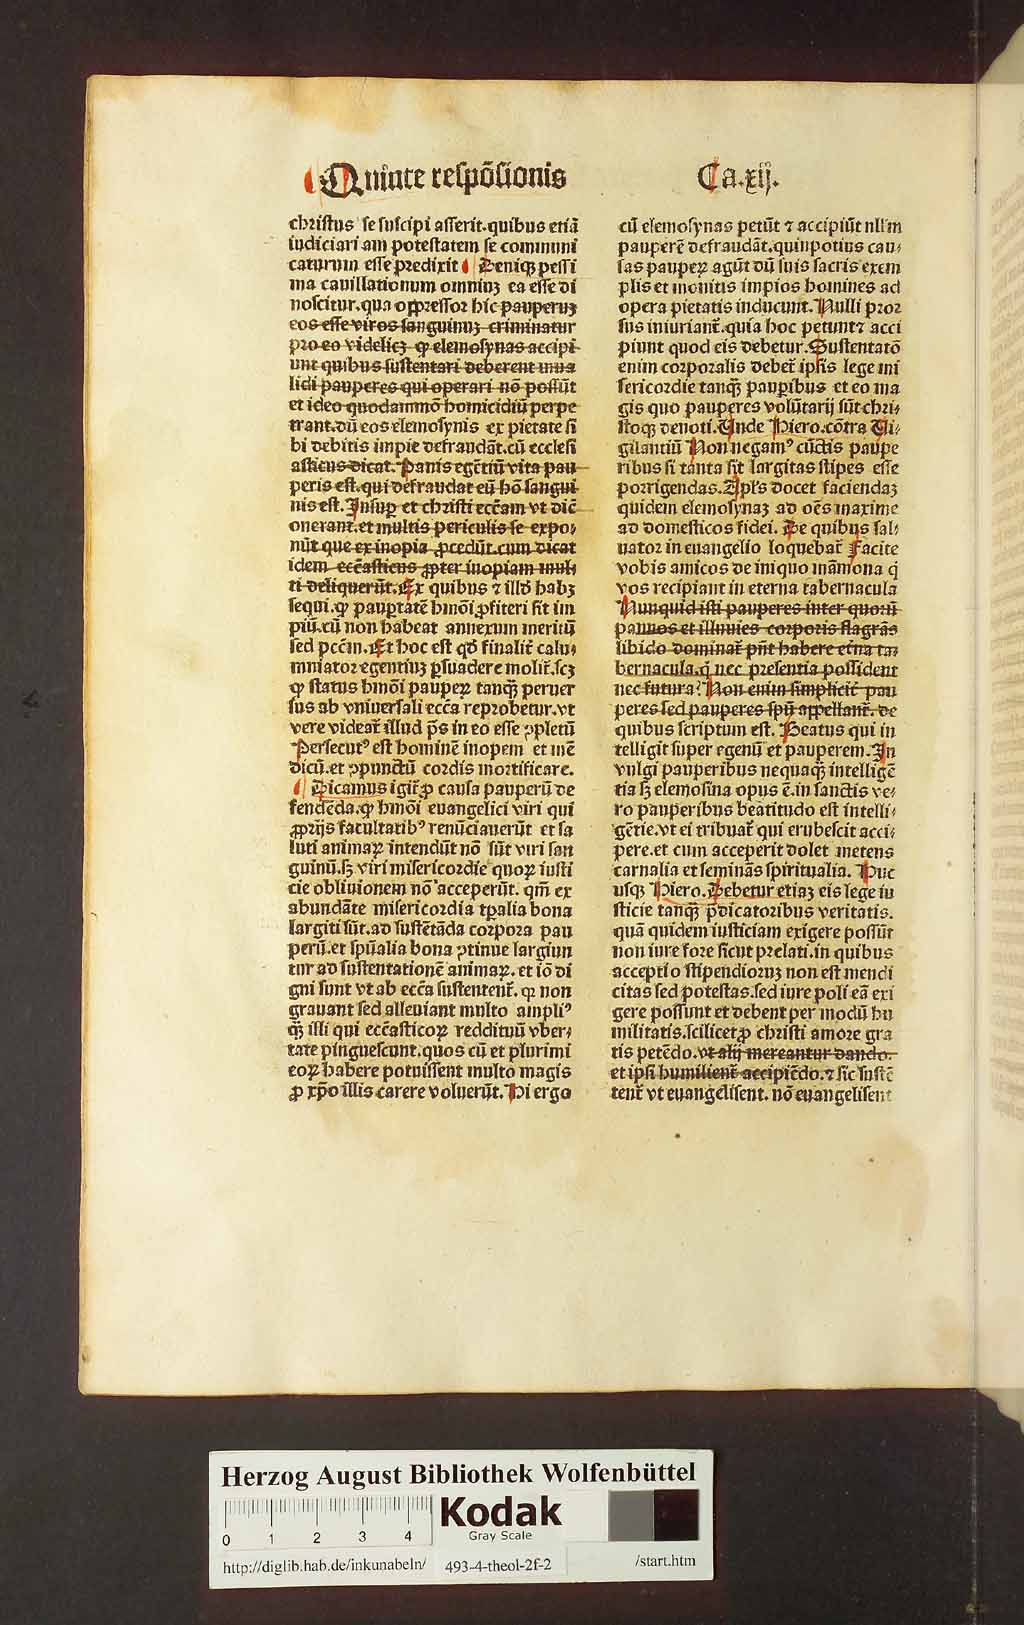 Quinte respōsionis
Ca.xij.
christus se suscipi asserit.quibus etiā
iudiciariam potestatem se communi
caturum esse predixit Deniqꝫ pessi
ma cauillationum omniuꝫ ea esse di
noscitur.qua oppressor hic pauperuꝫ
eos esse viros sanguinuꝫ criminatur
pro eo videlicꝫ ꝙ elemosynas accipi
unt quibus sustentari deberent inua
lidi pauperes qui operari nō possūt
et ideo quodammō homicidiū perpe
trant.dū eos elemosynis ex pietate si
bi debitis impie defraudāt.cū ecclesi
asticus dicat. Panis egētiū vita pau
peris est.qui defraudat eū hō sangui
nis est. Insuꝑ et christi eccēam vt dic̄
onerant.et multis periculis se expo-
nūt que ex inopia ꝓcedūt.cum dicat
idem eccēasticus ꝓpter inopiam mul
ti deliquerūt. Ex quibus ⁊ illd̄ habꝫ
sequi.ꝙ pauptatē hmōi ꝓfiteri sit im
piū.cū non habeat annexum meritū
sed pccm̄. Et hoc est qd̄ finalit̄ calu-
mniator egentiuꝫ ꝑsuadere molit̄.scꝫ
ꝙ status hmōi pauꝑeꝝ tanqꝫ̄ peruer
sus ab vniuersali eccā reprobetur.vt
vere videat̄ illud p̄s in eo esse ꝯpletū
Persecutꝰ est hominē inopem et mē
dicū.et ꝯpunctū cordis mortificare.
Dicamus igit̄ ꝓ causa pauperū de
fendēda.ꝙ hmōi euangelici viri qui
ꝓprijs facultatibꝰ renūciauerūt et sa
luti animaꝝ intendūt nō sūt viri san
guinū.sꝫ viri misericordie quoꝝ iusti
cie obliuionem nō acceperūt. qm̄ ex
abundāte misericordia tꝑalia bona
largiti sūt.ad sustētāda corpora pau
perū.et spūalia bona ꝯtinue largiun
tur ad sustentationē animaꝝ.et iō di
gni sunt vt ab eccā sustentent̄. qꝛ non
grauant sed alleuiant multo ampliꝰ
qꝫ̄ illi qui eccēasticoꝝ reddituū vber-
tate pinguescunt.quos cū et plurimi
eoꝝ habere potuissent multo magis
ꝓ xp̄o illis carere voluerūt. Hi ergo
cū elemosynas petūt ⁊ accipiūt nllm̄
pauperē defraudāt.quinpotius cau-
sas pauꝑeꝝ agūt dū suis sacris exem
plis et monitis impios homines ad
opera pietatis inducunt. Nulli pror
sus iniuriant̄.quia hoc petunt⁊ acci
piunt quod eis debetur. Sustentatō
enim corporalis debet̄ ipsis lege mi
sericordie tanqꝫ̄ paupibus et eo ma
gis quo pauperes volūtarij sūt chri-
stoqꝫ deuoti. Unde Hiero.cōtra Vi-
gilantiū Non negamꝰ cūctis paupe
ribus si tanta sit largitas stipes esse
porrigendas. Apl's docet faciendaꝫ
quidem elemosynaꝫ ad oēs maxime
ad domesticos fidei. De quibus sal-
uator in euangelio loquebat̄ facite
vobis amicos de iniquo māmona q̇
vos recipiant in eterna tabernacula
Nunquid isti pauperes inter quorū
pannos et illuuies corporis flagrās
libido dominat̄ pn̄t habere etn̄a ta-
bernacula.q̇ nec presentia possident
nec futura? Non enim simplicit̄ pau
peres sed pauperes spū appellant̄. de
quibus scriptum est. Beatus qui in
telligit super egenū et pauperem. In
vulgi pauperibus nequaqꝫ intelligē
tia sꝫ elemosina opus ē.in sanctis ve-
ro pauperibus beatitudo est intelli-
gētie.vt ei tribuat̄ qui erubescit acci-
pere.et cum acceperit dolet metens
carnalia et seminās spiritualia. Huc
usqꝫ Hiero. Debetur etiaꝫ eis lege iu
sticie tanqꝫ̄ p̄dicatoribus veritatis.
quā quidem iusticiam exigere possūt
non iure fore sicut prelati.in quibus
acceptio stipendioruꝫ non est mendi
citas sed potestas.sed iure poli eā exi
gere possunt et debent per modū hu
militatis.scilicet ꝓ christi amore gra
tis petēdo.vt alij mereantur dando.
et ipsi humilient̄ accipiēdo.⁊ sic sustē
tent̄ vt euangelisent. nō euangelisent
Herzog August Bibliothek Wolfenbüttel
0 1 2 3 4
Kodak
Gray Scale
http://diglib.hab.de/inkunabeln/ 493-4-theol-2f-2 /start.htm